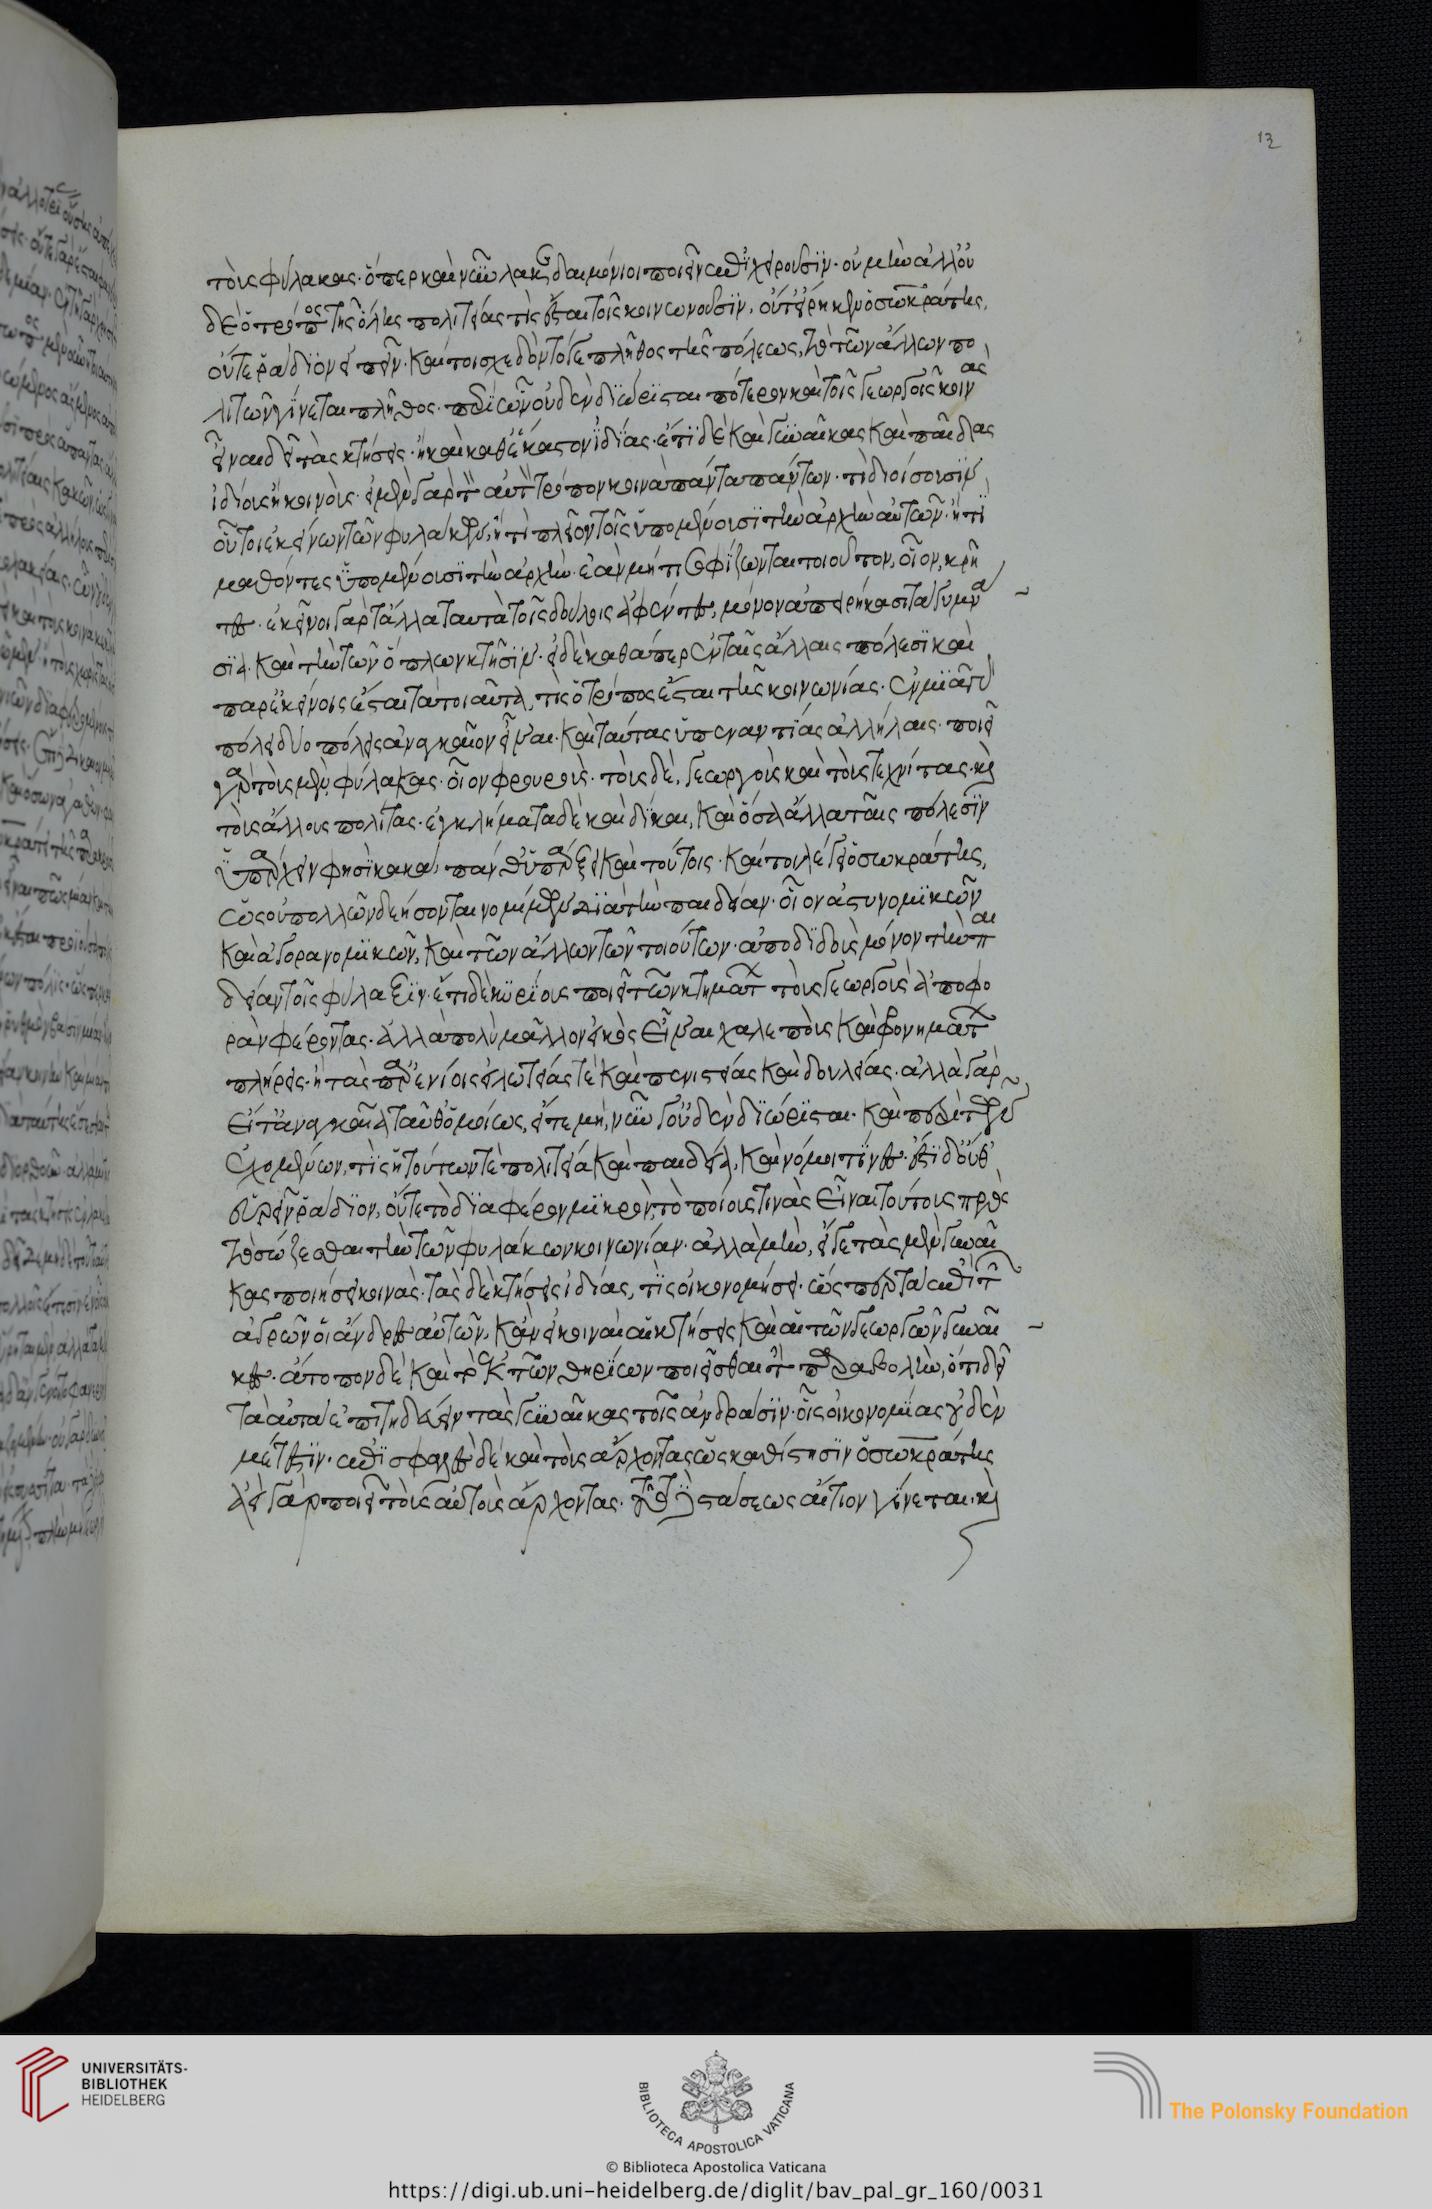 τοὺς φύλακας· ὅπερ καὶ νῦν λακεδαιμόνιοι ποιεῖν ἐπιχειροῦσϊν· οὐ μὴν ἀλλ' οὐ
δὲ ὁ τρόπος τῆς ὅλης πολιτείας τὶς ἔσται τοῖς κοινωνοῦσϊν, οὔτ' εἴρηκεν ὁ σωκράτης,
οὔτε ῥάδϊον εἰπεῖν· καίτοι σχεδὸν τό γε πλῆθος τῆς πόλεως, τὸ τῶν ἄλλων πο
λιτῶν γίνεται πλῆθος· περὶ ὧν οὐδὲν διώρϊσται πότερον καὶ τοῖς γεωργοῖς κοινὰς
εἶναι δεῖ τὰς κτήσεις· ἢ καὶ καθ' ἕκαστον ἰδίας· ἔτϊ δὲ καὶ γυναῖκας καὶ παῖδας
ἰδίοις ἢ κοινοὺς· εἰ μὲν γὰρ τὸν αὐτὸν τρόπον κοινὰ πάντα πάντων· τί διοίσουσϊν
οὗτοι ἐκείνων τῶν φυλάκων, ἢ τί πλεῖον τοῖς ὑπομένουσϊ τὴν ἀρχὴν αὐτῶν· ἢ τί
μαθόντες ὑπομένουσϊ τὴν ἀρχὴν· ἐὰν μή τι σοφίζωνται τοιοῦτον, οἷον, κρῆ
τες· ἐκεῖνοι γὰρ τἄλλα ταυτὰ τοῖς δούλοις ἀφέντες, μόνον ἀπειρήκασι τὰ γυμνά
σϊα· καὶ τὴν τῶν ὅπλων κτῆσϊν· εἰ δὲ καθάπερ ἐν ταῖς ἄλλαις πόλεσϊ καὶ
παρ' ἐκείνοις ἔσται τὰ τοιαῦτα, τίς ὁ τρόπος ἔσται τῆς κοινωνίας· ἐν μϊᾶ γὰρ
πόλει δύο πόλεις ἀναγκαῖον εἶναι· καὶ ταύτας ὑπεναντίας ἀλλήλαις· ποιεῖ
γὰρ τοὺς μὲν φύλακας· οἷον φρουροὺς· τοὺς δὲ, γεωργοὺς καὶ τοὺς τεχνίτας· καὶ
τοὺς ἄλλους πολίτας· ἐγκλήματα δὲ καὶ δίκαι, καὶ ὅσα ἄλλα ταῖς πόλεσϊν
ὑπάρχειν φησὶ κακὰ, πάνθ' ὑπάρξει καὶ τούτοις· καίτοι λέγει ὁ σωκράτης,
ὡς οὐ πολλῶν δεήσονται νομίμων διὰ τὴν παιδείαν· οἷον ἀστυνομϊκῶν
καὶ ἀγορανομϊκῶν, καὶ τῶν ἄλλων τῶν τοιούτων· ἀποδϊδοὺς μόνον τὴν παι
δείαν τοῖς φύλαξϊν· ἔτι δὲ κυρίους ποιεῖ τῶν κτημάτων τοὺς γεωργοὺς ἀποφο
ρὰν φέροντας· ἀλλὰ πολὺ μᾶλλον εἰκὸς εἶναι χαλεποὺς καὶ φρονημάτων
πλήρεις· ἢ τὰς παρ' ἐνίοις εἱλωτείας τὲ καὶ πενεστείας καὶ δουλείας· ἀλλὰ γὰρ
εἴτ' ἀναγκαῖα ταῦθ' ὁμοίως, εἴτε μὴ, νῦν γ' οὐδὲν διώρϊσται· καὶ περὶ τῶν
ἐχομένων, τίς ἡ τούτων τὲ πολιτεία καὶ παιδεία, καὶ νόμοι τίνες· ἔστϊ δ' οὔθ'
εὑρεῖν ῥάδϊον, οὔτε τὸ δϊαφέρον μϊκρὸν, τὸ ποίους τινὰς εἶναι τούτους πρὸς
τὸ σώζεσθαι τὴν τῶν φυλάκων κοινωνίαν· ἀλλὰ μὴν, εἴ γε τὰς μὲν γυναῖ
κας ποιήσει κοινὰς· τὰς δὲ κτήσεις ἰδίας, τίς οἰκονομήσει· ὥσπερ τὰ ἐπὶ τῶν
ἀγρῶν οἱ ἄνδρες αὐτῶν, κἂν εἰ κοιναὶ αἱ κτήσεις καὶ αἱ τῶν γεωργῶν γυναῖ
κες· ἄτοπον δὲ καὶ τὸ ἐκ τῶν θηρίων ποιεῖσθαι τὴν παραβολὴν, ὅτι δεῖ
τὰ αὐτὰ ἐπιτηδεύειν τὰς γυναῖκας τοῖς ἀνδράσϊν· οἷς οἰκονομίας οὐδὲν
μέτεστϊν· ἐπισφαλὲς δὲ καὶ τοὺς ἄρχοντας ὡς καθίστησϊν ὁ σωκράτης
ἀεὶ γὰρ ποιεῖ τοὺς αὐτοὺς ἄρχοντας· τοῦτο δὲ στάσεως αἴτιον γίνεται· καὶ
12
UNIVERSITÄTS-
BIBLIOTHEK
HEIDELBERG
BIBLIOTECA APOSTOLICA VATICANA
The Polonsky Foundation
© Biblioteca Apostolica Vaticana
https://digi.ub.uni-heidelberg.de/diglit/bav_pal_gr_160/0031